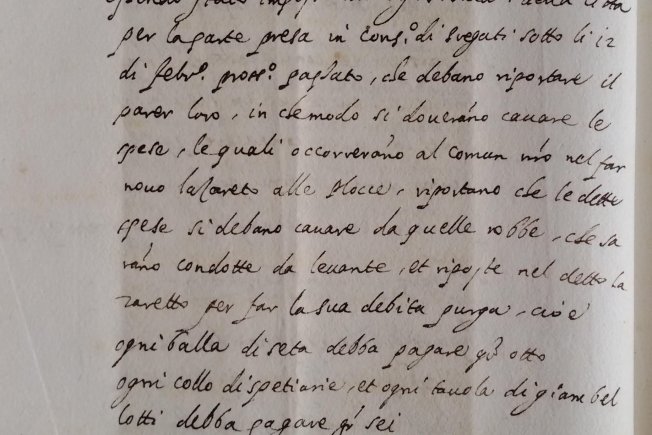 per la parte presa in cons.º di svegati sotto li 12
di febr.º pross.º passato, che debano riportare il
parer loro, in che modo si doverano cauare le
spese, le quali occorrerano al comun nr̃o nel far
nouo lazareto alle Plocce, riportano che le dette
spese si debano cauare da quelle robbe, che sa
rano condotte da leuante, et riposte nel detto la
zaretto per far la sua debita purga, cioè
ogni balla di seta debba pagare gr̃ otto
ogni collo di spetiarie, et ogni tauola di giambel
lotti debba pagare gr̃ sei